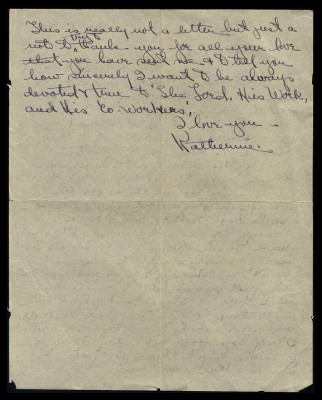 This is really not a letter but just a
not to thank you for all your love
that you have sent me & to tell you
how sincerely I want to be always
devoted & true to "The Lord, His Work,
and His Co-Workers",
I love you -
Katherine.